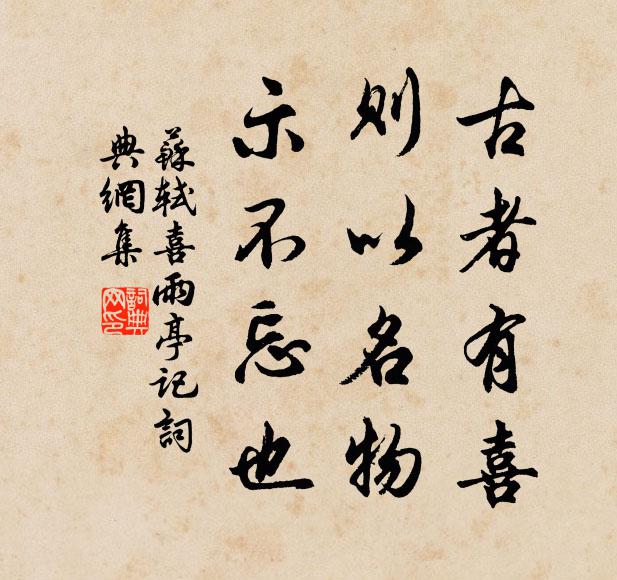 古者有喜
则以名物
示不忘也
蘇軾喜雨亭记詞
典網集
詞典
网印